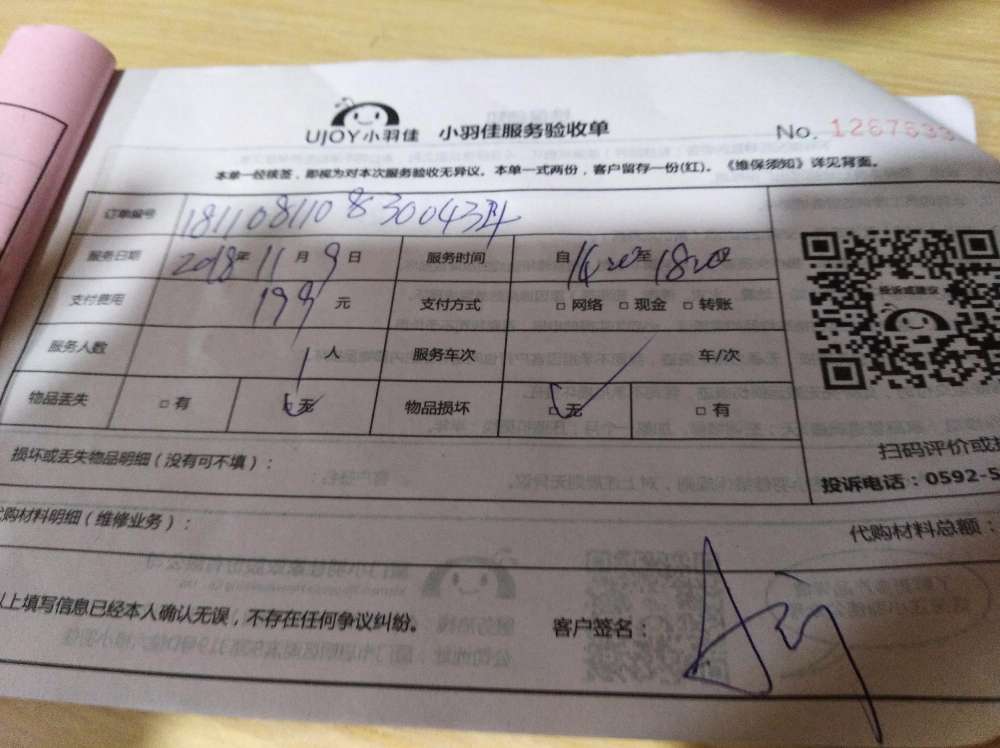 UJOY小羽佳 小羽佳服务验收单 No. 1267633
本单一经核签，即视为对本次服务验收无异议。本单一式两份，客户留存一份(红)。《维保须知》详见背面。
订单编号
服务日期 2018年 11 月 9 日 服务时间 自 16:20 至 18:20
支付费用 199 元 支付方式 □ 网络 □ 现金 □ 转账
服务人数 1 人 服务车次 车/次
物品丢失 □ 有 □ 无 物品损坏 □ 无 □ 有
投诉或建议
扫码评价或
损坏或丢失物品明细（没有可不填）：
投诉电话：0592-5
代购材料明细（维修业务）：
代购材料总额：
以上填写信息已经本人确认无误，不存在任何争议纠纷。
客户签名：